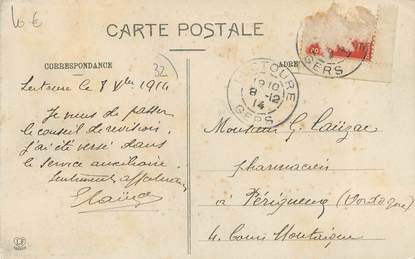 10 €
CARTE POSTALE
CORRESPONDANCE
ADRE
32
Lectoure le 8 Xbre 1914
Je viens de passer
le conseil de revision,
j'ai été versé dans
le service auxiliaire.
LECTOURE
19 10
8 -12
14
GERS
GERS
Monsieur G.
pharmacien
à Périgueux (Dordogne)
4. Cours Montaigne